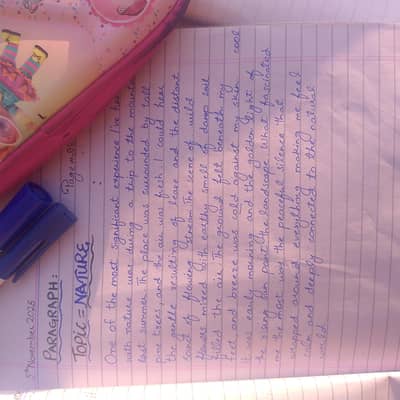 5th November 2025
PARAGRAPH:
Page no:
TOPIC = NATURE
One of the most significant experience I've had
with nature was during a trip to the mountains
last summer The place was surrounded by tall
pine trees, and the air was fresh I could hear
the gentle resulting of leaves and the distant
sound of flowing stream. The scene of wild
flowers mixed with earthy smell of damp soil
filled the air The ground felt beneath my
feet and breeze was cold against my skin
it was early morning and the golden light of
the rising sun the landscape What fascinated
me the most was the peaceful silence that
wrapped around everything making me feel
calm and deeply connected to the natural
world